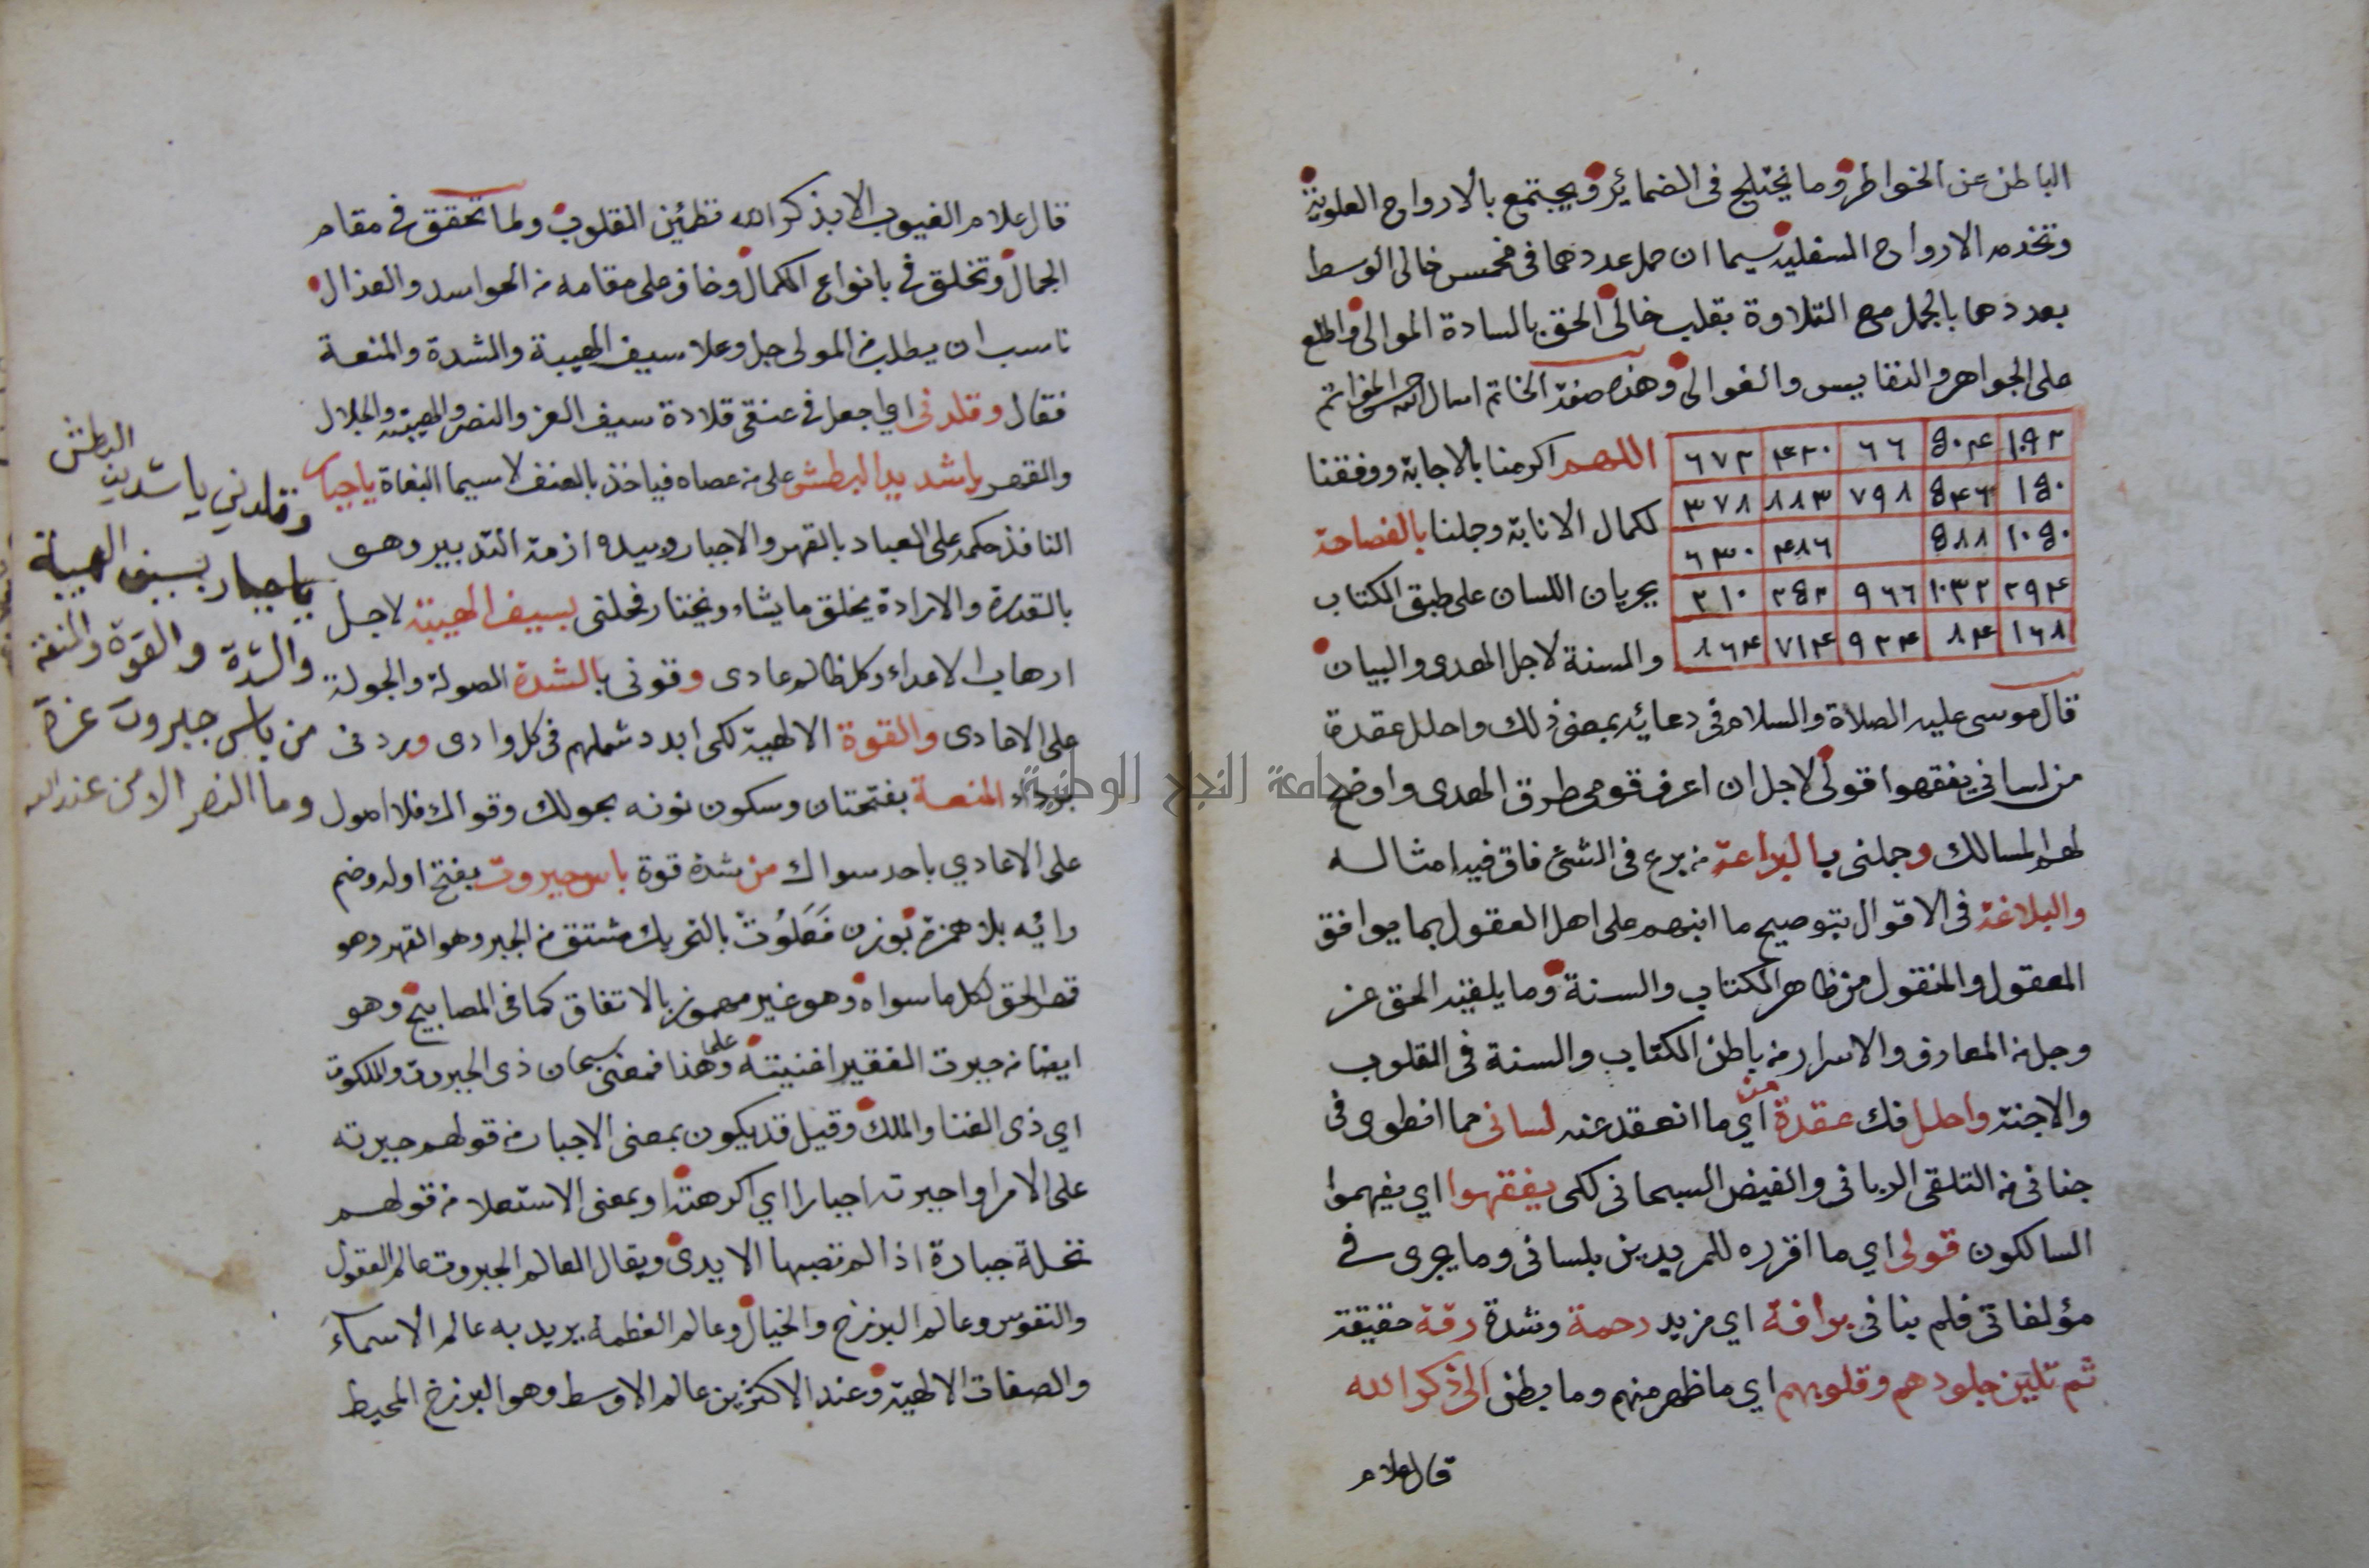 الباطن عن الخواطر وما يختلج في الضمائر ويجتمع بالارواح العلوية
وتخدمه الارواح السفلية سيما ان حمل عددهما في مخمس خالى الوسط
بعددهما بالجمل مع التلاوة بقلب خالى الحق بالسادة الموالى واطلع
على الجواهر والنفايس والغوالى وهذه صفة الخاتم اسال الله حسن الخواتم
١٠٩٢ ٥٠٤ ٦٦ ٤٢٠ ٦٧٢
اللهم اكرمنا بالاجابة ووفقنا
١٥٠ ٥٤٦ ٧٩٨ ٨٨٣ ٣٧٨
لكمال الانابة وجملنا بالفصاحة
١٠٥٠ ٥٨٨ ٤٨٦ ٦٣٠
بجريان اللسان على طبق الكتاب
٢٩٤ ١٠٣٢ ٩٦٦ ٢٥٢ ٢١٠
والسنة لاجل الهدى والبيان
١٦٨ ٨٤ ٩٢٤ ٧١٤ ٨٦٤
قال موسى عليه الصلاة والسلام في دعائه بمعنى ذلك واحلل عقدة
من لساني يفقهوا قولى لاجل ان اعرف قومى طرق الهدى واوضح
لهم المسالك وجملنى بالبراعة من برع في الشئ فاق فيه امثاله
والبلاغة في الاقوال بتوضيح ما ابهم على اهل العقول بما يوافق
المعقول والمنقول من ظاهر الكتاب والسنة وما يلقيه الحق عز
وجل من المعارف والاسرار من باطن الكتاب والسنة في القلوب
والاجنة واحلل فك عقدة اي ما انعقد عنه من لسانى مما انطوى في
جنانى من التلقى الربانى والفيض السبحانى لكى يفقهوا اي يفهموا
السالكون قولى اي ما اقرره للمريدين بلسانى وما يجرى في
مؤلفاتى فلم بنانى برافة اي مزيد رحمة وشدة رقة حقيقة
ثم تلين جلودهم وقلوبهم اي ما ظهر منهم وما بطن الى ذكر الله
قال علام
قال علام الغيوب الا بذكر الله تطمئن القلوب ولما تحقق في مقام
الجمال وتخلق في بانواع الكمال وخاف على مقامه من الحواسد والعذال
ناسب ان يطلب من المولى جل وعلا سيف الهيبة والشدة والمنعة
فقال وقلدنى اي اجعل في عنقى قلادة سيف العز والنصر والهيبة والجلال
والقهر ياشديد البطش على من عصاه فياخذ بالعنف لا سيما البغاة ياجبار
النافذ حكمه على العباد بالقهر والاجبار وبيده ازمة التدبير وهو
بالقدرة والارادة يخلق ما يشاء ويختار فحلنى بسيف الهيبة لاجل
ارهاب الاعداء وكل ظالم عادى وقونى بالشدة الصولة والجولة
على الاعادى والقوة الالهية لكى ابدد شملهم في كل وادى وردنى
برداء المنعة بفتحتان وسكون نونه بحولك وقواك فلا اصول
على الاعادي باحد سواك من شدة قوة باس جبروت بفتح اوله وضم
رائه بلا همزة بوزن فَعَلُوت بالتحريك مشتق من الجبر وهو القهر وهو
قهر الحق لكل ما سواه وهو غير مهموز بالاتفاق كما في المصابيح وهو
ايضا من جبرت الفقير اغنيته وعلى هذا فمعنى سبحان ذى الجبروت والملكوت
اي ذى الغنا والملك وقيل قد يكون بمعنى الاجبار من قولهم جبرته
على الامر او اجبرته اجبارا اي اكرهته او بمعنى الاستعلا من قولهم
نخلة جبارة اذا لم تصبها الايدى ويقال العالم الجبروت عالم العقول
والنفوس وعالم البرزخ والخيال وعالم العظمة يريد به عالم الاسماء
والصفات الالهية وعند الاكثرين عالم الاوسط وهو البرزخ المحيط
البطش
وقلدني ياشديد
ياجبار بسيف الهيبة
والشدة والقوة والمنعة
من باس جبروت عزة
وما النصر الا من عند الله
جامعة النجاح الوطنية